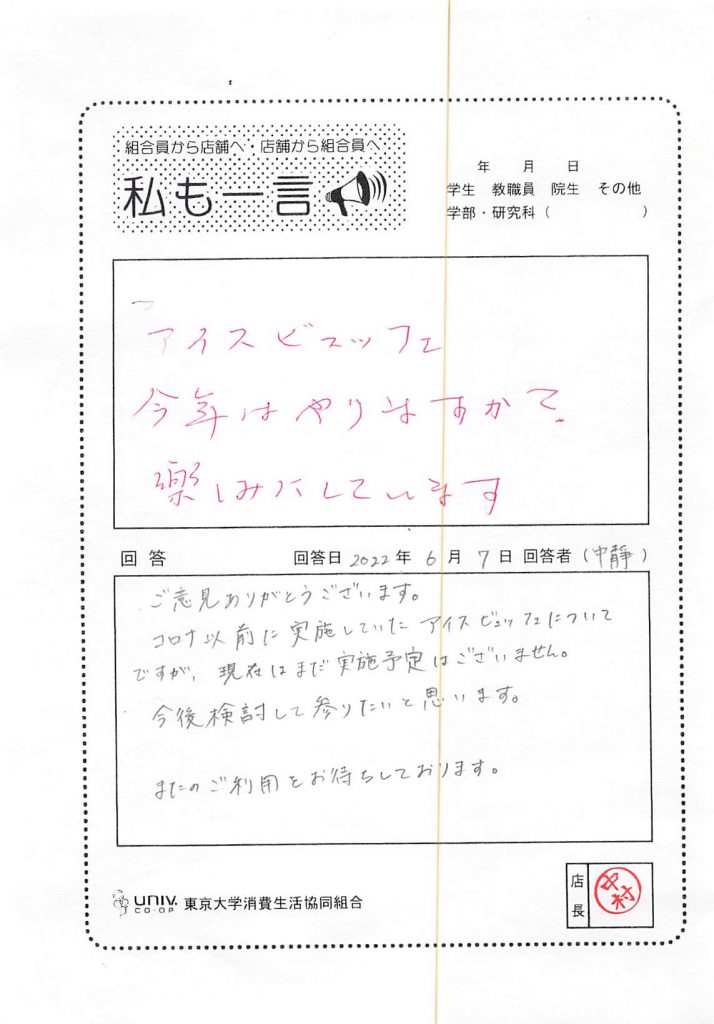 組合員から店舗へ・店舗から組合員へ
私も一言
年 月 日
学生 教職員 院生 その他
学部・研究科( )
アイスビュッフェ
今年はやりますか?
楽しみにしています
回答 回答日 2022年 6月 7日 回答者(中靜)
ご意見ありがとうございます。
コロナ以前に実施していたアイスビュッフェについて
ですが、現在はまだ実施予定はございません。
今後検討して参りたいと思います。
またのご利用をお待ちしております。
店長
中村
UNIV. CO-OP 東京大学消費生活協同組合